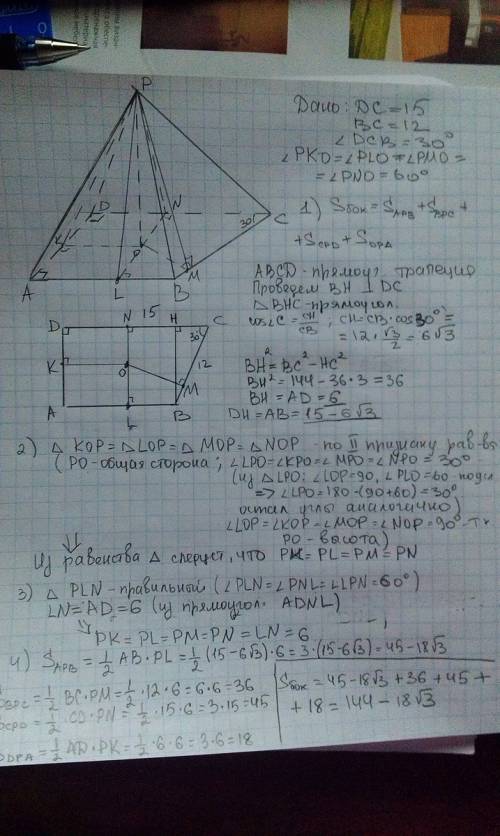 P
D
N
C
30°
K
O
M
A
L
B
Дано: DC = 15
BC = 12
∠ DCB = 30°
∠PKO = ∠PLO = ∠PMO =
= ∠PNO = 60°
1) Sбок = SAPB + SBPC +
+ SCPD + SDPA
ABCD - прямоуг. трапеция
Проведем BH ⊥ DC
△ BHC - прямоугол.
cos∠C = CH/CB ; CH = CB · cos30° =
= 12 · √3/2 = 6√3
BH² = BC² - HC²
BH² = 144 - 36 · 3 = 36
BH = AD = 6
DH = AB = 15 - 6√3
D
N
15
H
C
30°
K
O
12
M
A
L
B
2) △ KOP = △ LOP = △ MOP = △ NOP - по II признаку рав-ва
(PO - общая сторона ; ∠LPO = ∠KPO = ∠MPO = ∠NPO = 30°
(из △LPO: ∠LOP = 90, ∠PLO = 60 - по усл
=> ∠LPO = 180 - (90+60) = 30°
остал углы аналогично)
∠LOP = ∠KOP = ∠MOP = ∠NOP = 90° - т.к
PO - высота)
Из равенства △ следует, что PK = PL = PM = PN
3) △ PLN - правильный (∠PLN = ∠PNL = ∠LPN = 60°)
LN = AD = 6 (из прямоугол. ADNL)
PK = PL = PM = PN = LN = 6
4) SAPB = 1/2 AB · PL = 1/2 (15 - 6√3) · 6 = 3 · (15 - 6√3) = 45 - 18√3
BPC = 1/2 BC · PM = 1/2 · 12 · 6 = 6 · 6 = 36
CPD = 1/2 · CD · PN = 1/2 · 15 · 6 = 3 · 15 = 45
DPA = 1/2 AD · PK = 1/2 · 6 · 6 = 3 · 6 = 18
Sбок = 45 - 18√3 + 36 + 45 +
+ 18 = 144 - 18√3